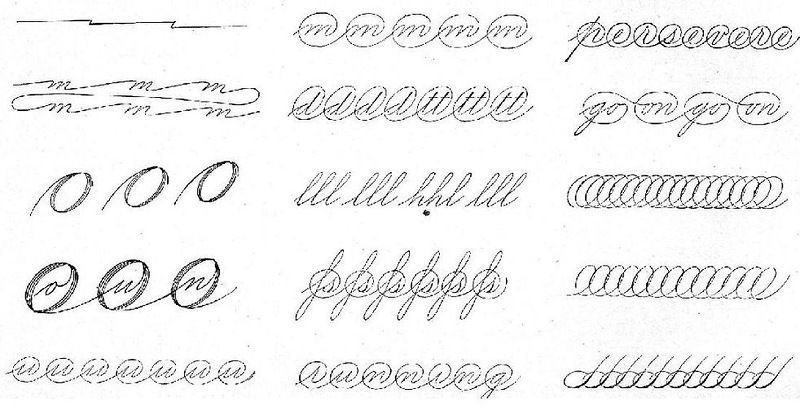 m m m
m m m
O O O
o u n
m m m m m
d d d d tt tt tt
lll lll hhl lll
running
persevere
go on go on